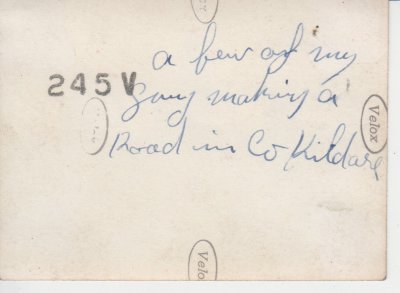 a few of my
245V
Gang making a
Road in Co Kildare
Velox
Velox